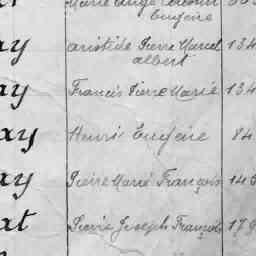 Marie Ange
Eugène
ay aristide Pierre Marcel 134
albert
ay Francis Pierre Marie 134
ay Henri Eugène 84
ay Pierre Marie François 146
at Pierre Joseph François 179